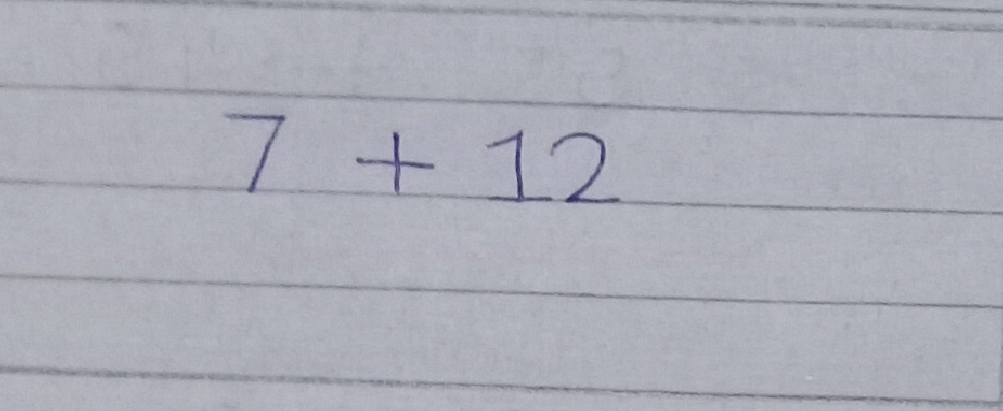 7 + 12